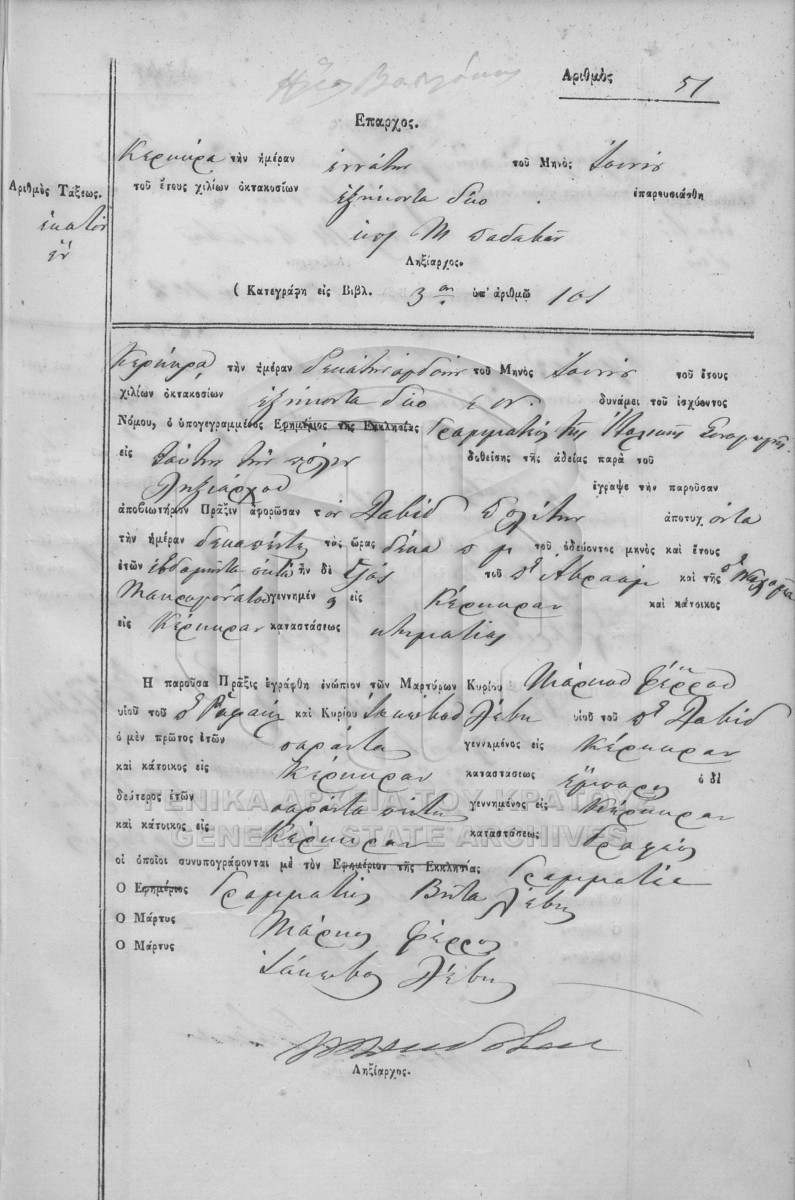 Αριθμὸς 51
Επαρχος.
Κερκυρα τὴν ἡμέραν ἐννάτη τοῦ Μηνὸς Ἰουνίου
Αριθμὸς Τάξεως. τοῦ ἔτους χιλίων ὀκτακοσίων ἑξήκοντα δύο ἐπαρουσιάσθη
ἑκατὸν
ἓν
Ληξίαρχος.
( Κατεγράφη εἰς Βιβλ. 3ον ὑπ' ἀριθμῷ 101
Κερκυρα τὴν ἡμέραν τοῦ Μηνὸς Ἰουνίου τοῦ ἔτους
χιλίων ὀκτακοσίων ἑξήκοντα δύο δυνάμει τοῦ ἰσχύοντος
Νόμου, ὁ ὑπογεγραμμένος Εφημέριος τῆς Εκκλησίας Γραμματεὺς τῆς Ἰταλικῆς Συναγωγῆς
εἰς ταύτην τὴν πόλιν δοθείσης τῆς ἀδείας παρὰ τοῦ
Ληξιάρχου ἔγραψε τὴν παροῦσαν
ἀποβιωτήριον Πρᾶξιν ἀφορῶσαν τὸν Δαβὶδ Πολίτην ἀποτυχόντα
τὴν ἡμέραν δεκαπέντε τὰς ὥρας δέκα π μ τοῦ ὁδεύοντος μηνὸς καὶ ἔτους
ἐτῶν ἑβδομῆντα ὀκτὼ ἦν δὲ υἱὸς τοῦ πε Ἀβραὰμ καὶ τῆς πε
γεννημένος εἰς Κέρκυραν καὶ κάτοικος
εἰς Κέρκυραν καταστάσεως κτηματίας
Η παροῦσα Πρᾶξις ἐγράφθη ἐνώπιον τῶν Μαρτύρων Κυρίου Μάρκου Φέρρου
υἱοῦ τοῦ πε καὶ Κυρίου Ἰακώβου Λέβη υἱοῦ τοῦ πε Δαβὶδ
ὁ μὲν πρῶτος ἐτῶν σαράντα γεννημένος εἰς Κέρκυραν
καὶ κάτοικος εἰς Κέρκυραν καταστάσεως ἔμπορος ὁ δὲ
δεύτερος ἐτῶν σαράντα πέντε γεννημένος εἰς Κέρκυραν
καὶ κάτοικος εἰς Κέρκυραν καταστάσεως
οἱ ὁποῖοι συνυπογράφονται μὲ τὸν Εφημέριον τῆς Εκκλησίας Γραμματέα
Ο Εφημέριος Γραμματεὺς Βήτα Λέβης
Ο Μάρτυς Μάρκος Φέρρος
Ο Μάρτυς Ἰάκωβος Λέβης
Ληξίαρχος.
ΓΕΝΙΚΑ ΑΡΧΕΙΑ ΤΟΥ ΚΡΑΤΟΥΣ
GENERAL STATE ARCHIVES